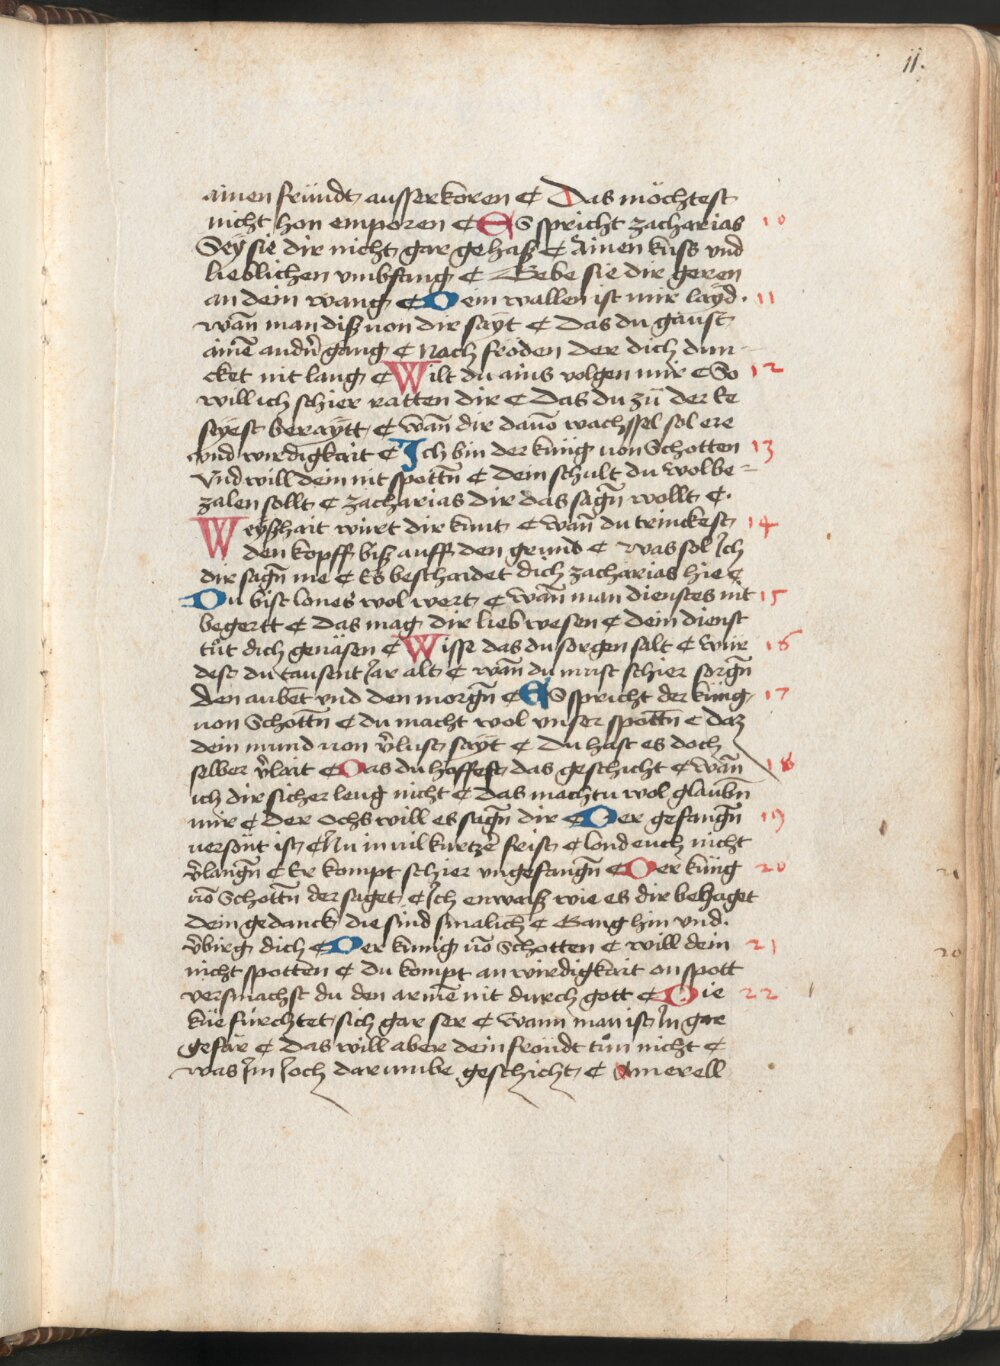 11.
ainen fründt ausserkoren ¢ Das möchtest
nicht hon emporen ¢ ES spricht zacharias 10
Sey sie dir nicht gar gehasz ¢ Ainen kuss vnd
lieblichen vmbfang ¢ Gebe sie dir geren
an dein wang ¢ Dein wallen ist mir layd. 11
wan̄ man disz von dir sayt ¢ das du gaust
ainē andn̄ gang ¢ nach fröden der dich dun-
cket nit lang ¢ Wilt du ains volgen mir ¢ So 12
will ich schier ratten dir ¢ Das du zü der ke
seyest beraytt ¢ wan̄ dir dauō wachssel sol ere
vnd wirdigkait ¢ Ich bin der künig von Schotten 13
Vnd will dein nit spottn̄ ¢ dein schult du wol be-
zalen sollt ¢ zacharias dir das sagn̄ wollt ¢.
Weyszhait würt dir kunt ¢ wan̄ du trinckest 14
den kopff bisz auff den grund ¢ was sol Ich
dir sagn̄ me ¢ Es beschaidet dich zacharias hie ¢
Du bist lones wol wert ¢ wan̄ man dienstes nit 15
begertt ¢ das mag dir lieb wesen ¢ dein dienst
tůt dich genäsen ¢ Wisse das du sorgen salt ¢ wür 16
dest du tausent Jar alt ¢ wan̄ du must schier sorgn̄
den aubent vnd den morgn̄ ¢ ES spricht der küng 17
von Schottn̄ ¢ du macht wol vnser spottn̄ ¢ daz
dein mund von v̄lust sayt ¢ Du hast es doch
selber v̄lait ¢ Das du hoffest das geschicht ¢ wan̄ 18
ich dir sicher leug nicht ¢ das machtu wol glaubn̄
mir ¢ der Ochs will es sagn̄ dir ¢ Der gefangn̄ 19
versönt ist ¢ Nu in vil kurtzer frist ¢ lond euch nicht
v̄langn̄ ¢ Er kompt schier vngefangn̄ ¢ Der küng 20
vō Schottn̄ der saget ¢ Ich enwaisz wie es dir behaget
dein gedanck die sind smalich ¢ Gang hin vnd.
v̄birg dich ¢ Der künig vō Schotten ¢ will dein 21
nicht spotten ¢ du kompt an wirdigkait on spott
versmachst du den armē nit durch gott ¢ Die 22
küe fürchtet sich gar ser ¢ wann man ist In gar
gefar ¢ das will aber dein fröudt tůn nicht ¢
was Im Joch darumbe geschicht ¢ Amerell